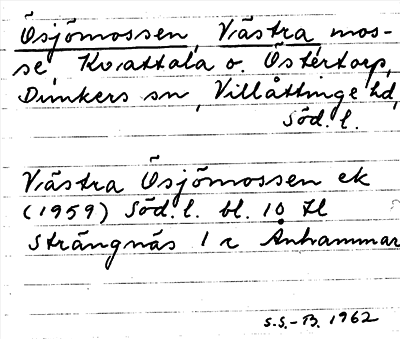 Ösjömossen, Västra mos-
se, Kvattala o. Östertorp,
Dunkers sn, Villåttinge hd,
Söd. l.
Västra Ösjömossen ek
(1959) Söd. l. bl. 10 H
Strängnäs 1 c Anhammar
S.S.-B. 1962